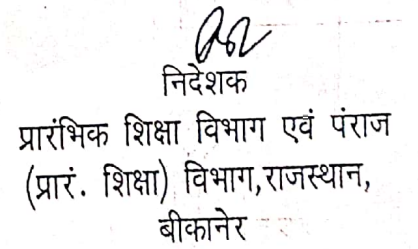 निदेशक
प्रारंभिक शिक्षा विभाग एवं पंराज
(प्रारं. शिक्षा) विभाग,राजस्थान,
बीकानेर